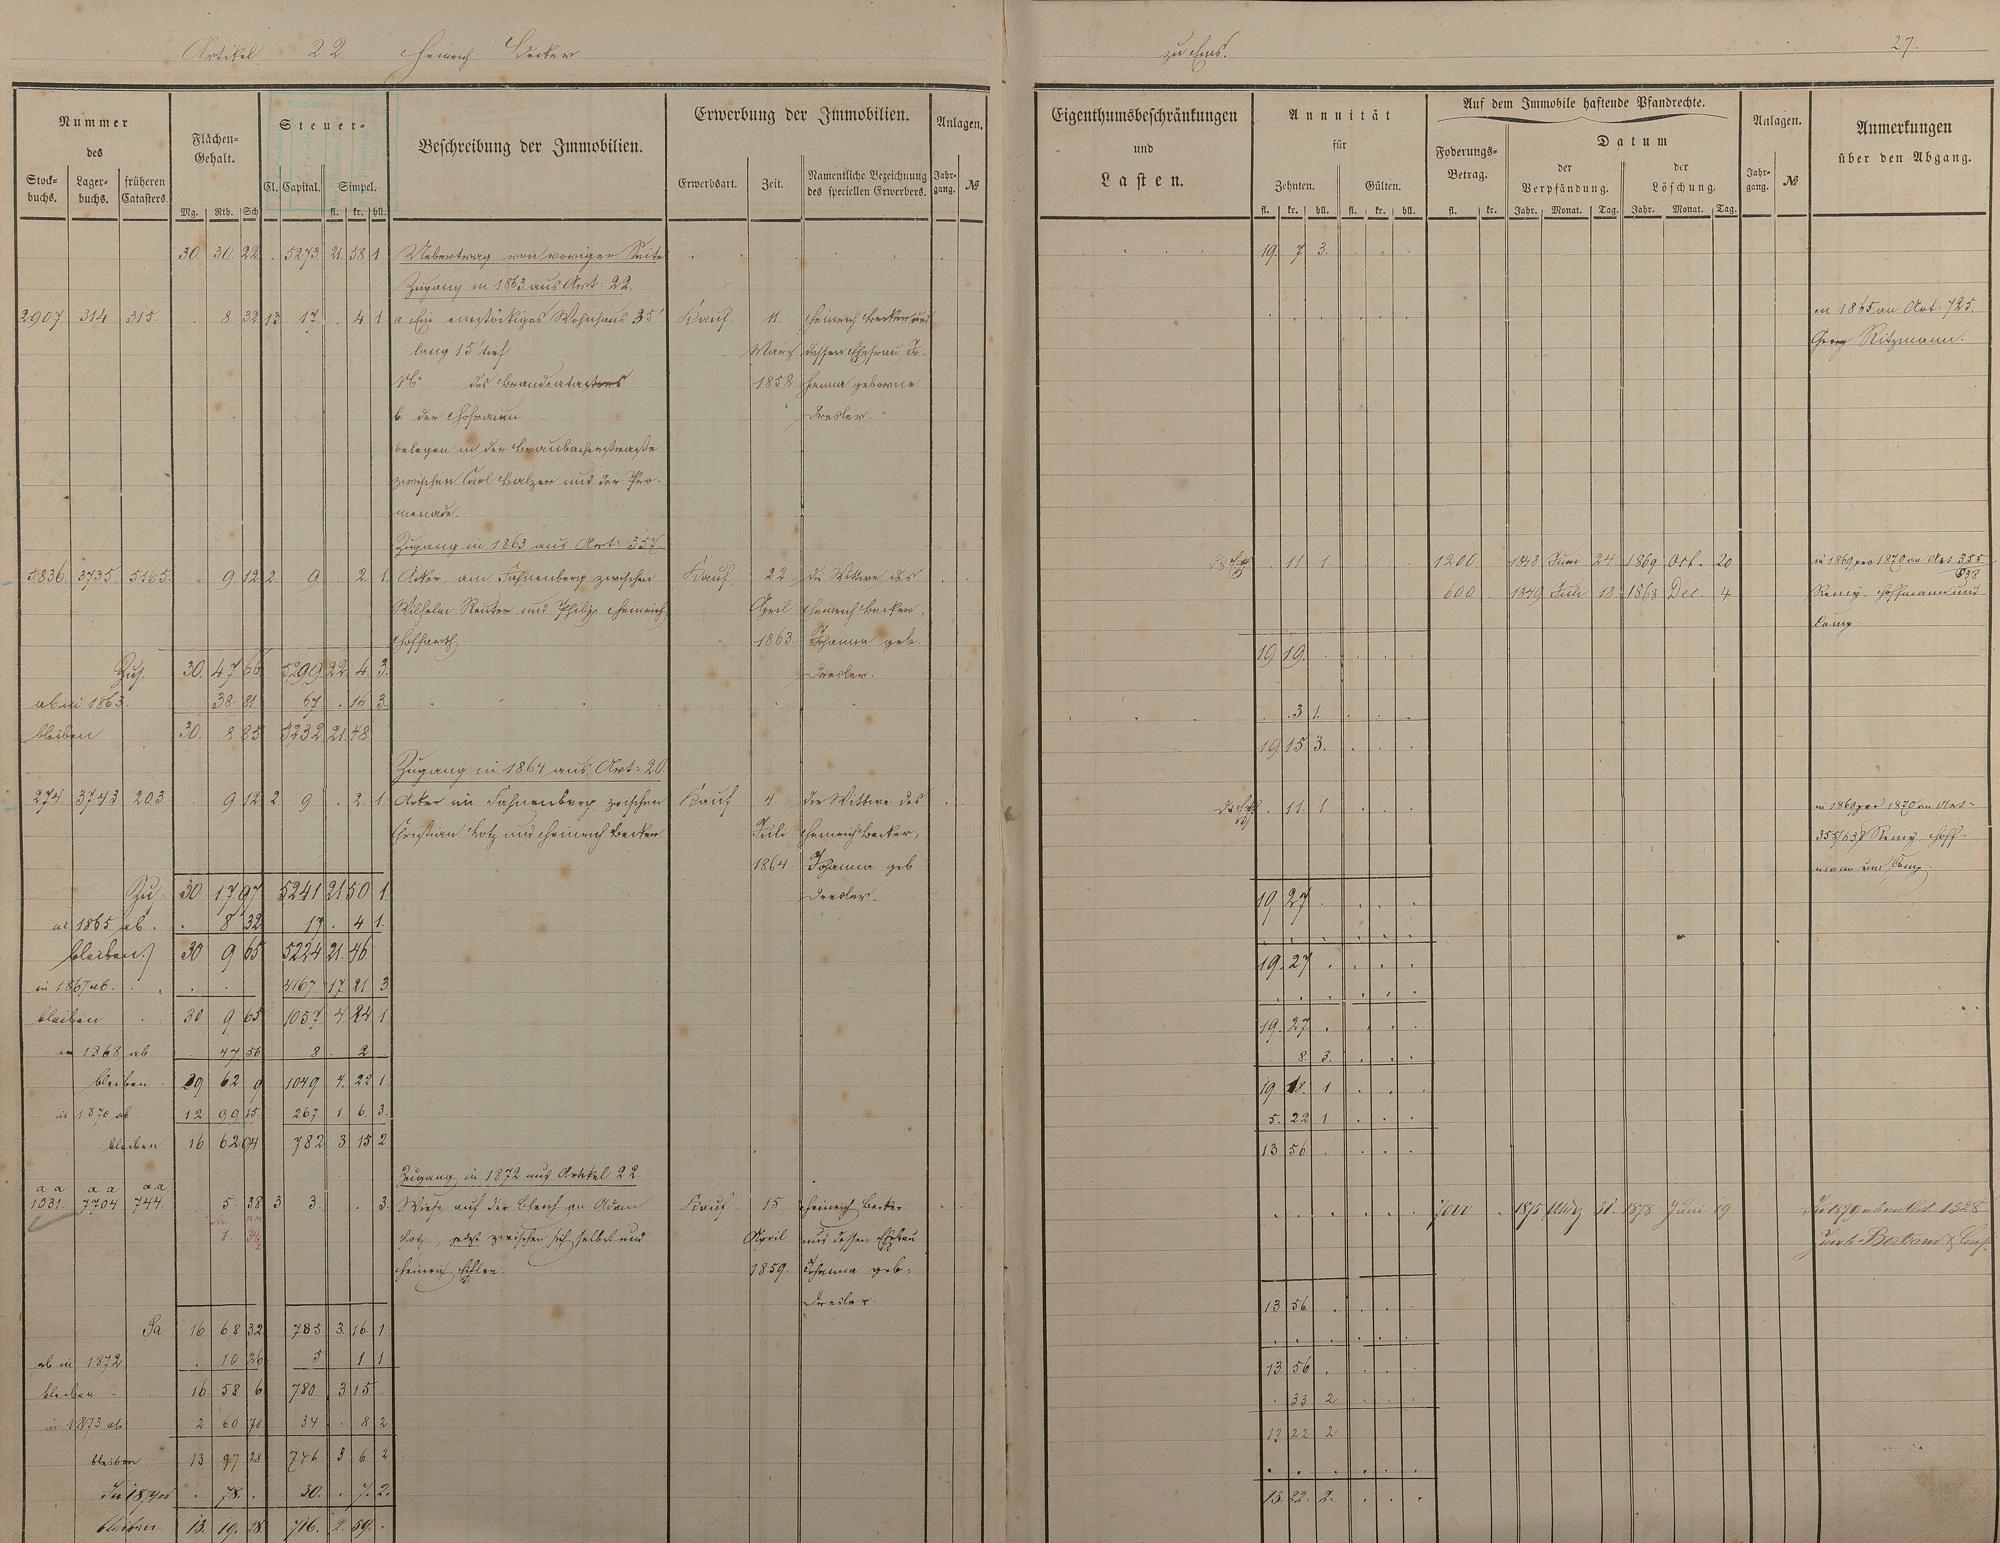 Artikel 22. Heinrich Becker
zu Ems.
27.
Nummer
des
Stock-
buchs.
Lager-
buchs.
früheren
Catasters.
Flächen-
Gehalt.
Mg. Rth. Sch
Steuer-
Cl. Capital. Simpel.
fl. kr. hll.
Beschreibung der Immobilien.
Erwerbung der Immobilien.
Erwerbsart. Zeit. Namentliche Bezeichnung
des speciellen Erwerbers.
Anlagen.
Jahr-
gang. №
Eigenthumsbeschränkungen
und
Lasten.
Annuität
für
Zehnten. Gülten.
fl. kr. hll. fl. kr. hll.
Auf dem Immobile haftende Pfandrechte.
Foderungs-
Betrag.
fl. kr.
Datum
der
Verpfändung.
der
Löschung.
Jahr. Monat. Tag. Jahr. Monat. Tag.
Anlagen.
Jahr-
gang. №
Anmerkungen
über den Abgang.
30. 30. 22. 5273 21. 58 1 Uebertrag von voriger Seite 19. 7 3.
Zugang in 1863 aus Art: 22.
2907 314 315. 8 32 13 17 . 4 1 a Ein einstöckiges Wohnhaus 35' Kauf 11 Heinrich Becker und in 1865 an Art: 725.
lang 15' tief März dessen Ehefrau Jo- Georg Ritzmann.
des Brandcatasters 1858 hanna geborne
b der Hofraum Dresler.
belegen in der Braubacherstraße
zwischen Carl Balzer und der Pro-
menade.
Zugang in 1863 aus Art: 357.
5836 3735. 5165. 9 12 2 9 . 2. 1. Acker, am Fahnenberg zwischen Kauf 22 die Wittwe des . 11 1. 1200. 1848 Juni 24 1869 Oct. 20 in 1869 pro 1870 an Art 355
Wilhelm Reuter und Philipp Heinrich April Heinrich Becker, 600. 1849 Juli 18. 1868 Dec. 4 Remy, Hoffmann und
Hoffarth. 1863. Johanna geb. Comp.
Dresler.
Zus. 30. 47 66 5299 22. 4. 3. 19 19.
ab in 1863. 38. 81 67 . 16 3. . 3 1.
bleiben 30. 8 85 5232 21. 48 19. 15. 3.
Zugang in 1864 aus Art: 20
274 3743 203 . 9 12 2 9 . 2. 1. Acker im Fahnenberg zwischen Kauf 4. der Wittwe des . 11. 1 in 1869 pro 1870 an Art:
Christian Lotz und Heinrich Becker Juli Heinrich Becker, Remy, Hoff-
1864. Johanna geb mann und Comp.
Dresler.
Zus. 30 17 97 5241 21 50 1 19 27
in 1865 ab. . 8 32 17 . 4 1.
bleiben. 30 9 65 5224 21. 46 19. 27
in 1867 ab. 4167 17 21 3
bleiben 30 9 65 1057 4. 24 1 19. 27
in 1868 ab 47 56 8 . 2 8. 3.
bleiben 29 62 9 1049 4. 22 1 19 18. 1
in 1870 ab 12 99 15 267 1 6. 3. 5. 22 1
bleiben 16 62 94 782 3 15 2 13 56
Zugang in 1872 aus Artikel 22.
a a a a a a
1031. 7704 744. 5. 38 3 3. . 3. Wiese auf der Bleich an Adam Kauf. 15 Heinrich Becker 1875 März 11. 1878 Juni 19
Lotz, zwischen sich selbst und April und dessen Ehefrau
Heinrich 1859. Johanna geb.
Dresler. 13 56
Sa 16 68 32 785 3. 16. 1.
ab in 1872 . 10 26 5 1 1 13. 56
bleiben 16 58 6 780 3 15 . 33 2
in 1873 ab 2 60 78 34 . 8 2 13 22 2
bleiben 13 97 28 746 3 6 2
. 78. 30. . 7. 2. 13. 22. 2.
bleiben 13. 19. 28. 716. 2. 59.